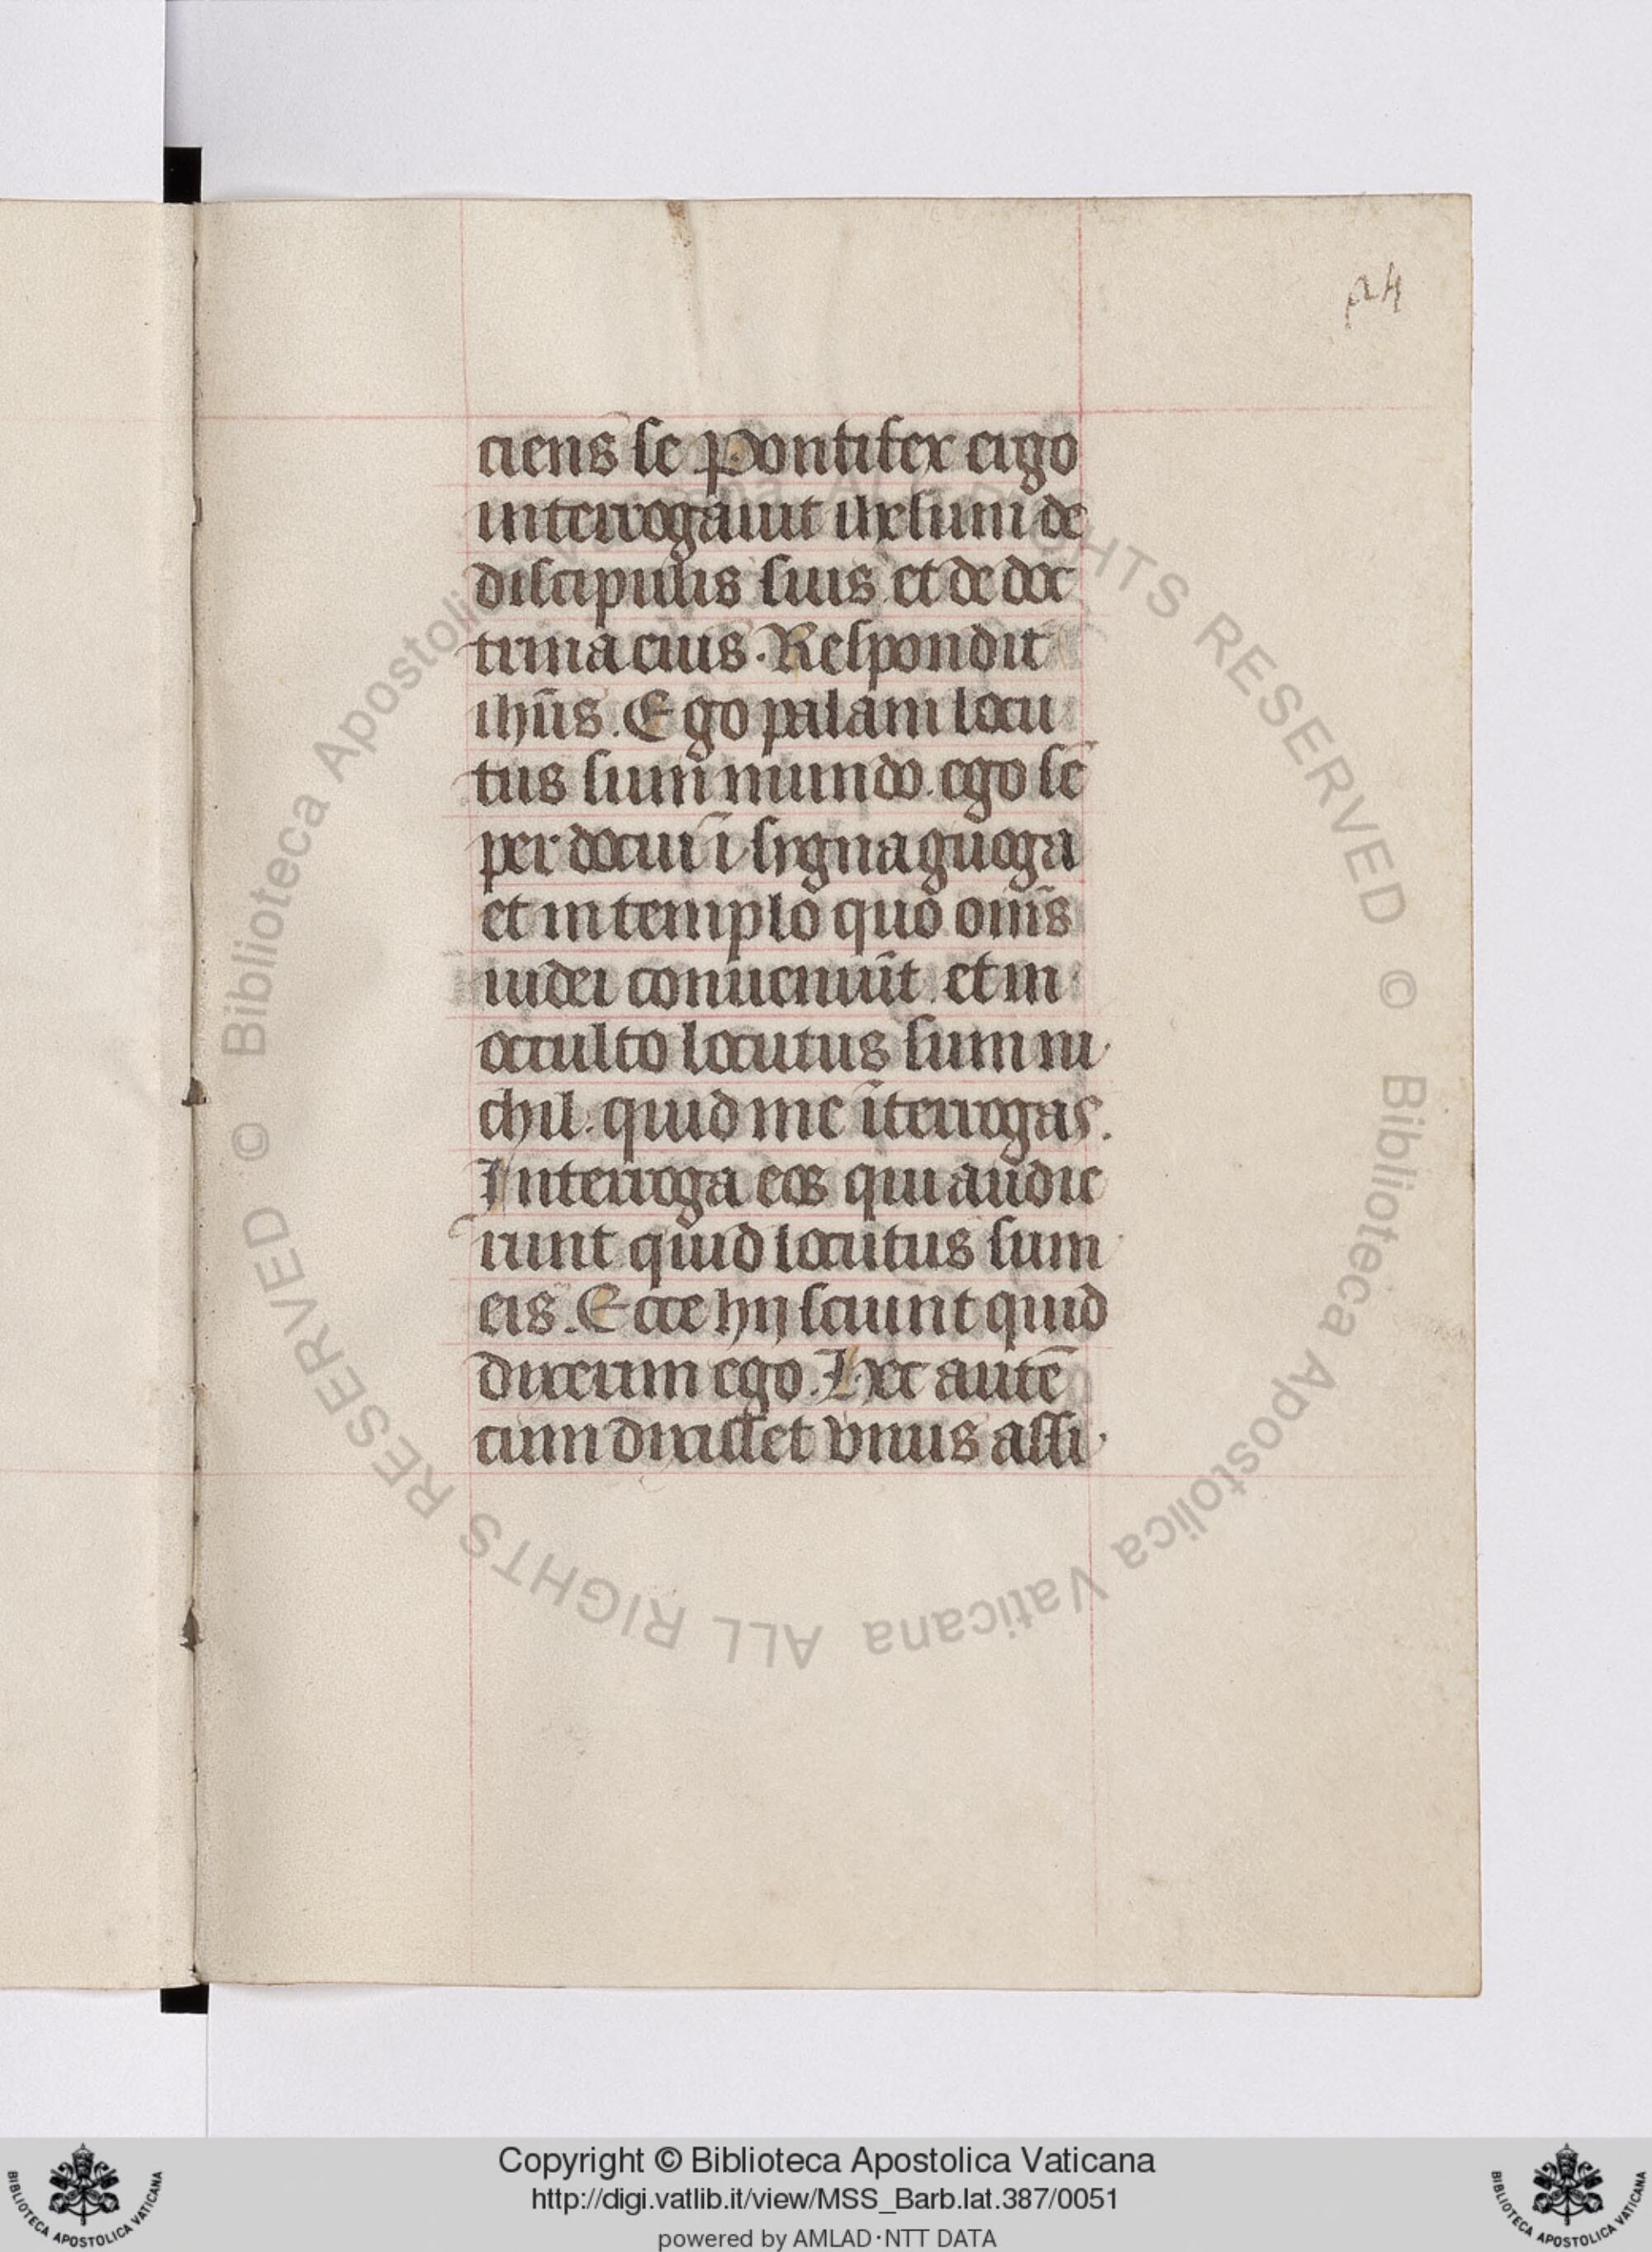 24
ciens se Pontifex ergo
interrogauit ihesum de
discipulis suis et de doc
trina eius. Respondit
ihūs. Ego palam locu
tus sum mundo. ego sē
per docui ī sygnaguoga
et in templo quo om̄s
iudei conueniūt. et in
occulto locutus sum ni
chil. quid me īterrogas.
Interroga eos qui audie
runt quid locutus sum
eis. Ecce hij sciunt quid
dixerim ego. Hec autē
cum dixisset vnus assi
© Biblioteca Apostolica Vaticana ALL RIGHTS RESERVED © Biblioteca Apostolica Vaticana ALL RIGHTS RESERVED
Copyright © Biblioteca Apostolica Vaticana
http://digi.vatlib.it/view/MSS_Barb.lat.387/0051
powered by AMLAD·NTT DATA
BIBLIOTECA APOSTOLICA VATICANA
BIBLIOTECA APOSTOLICA VATICANA